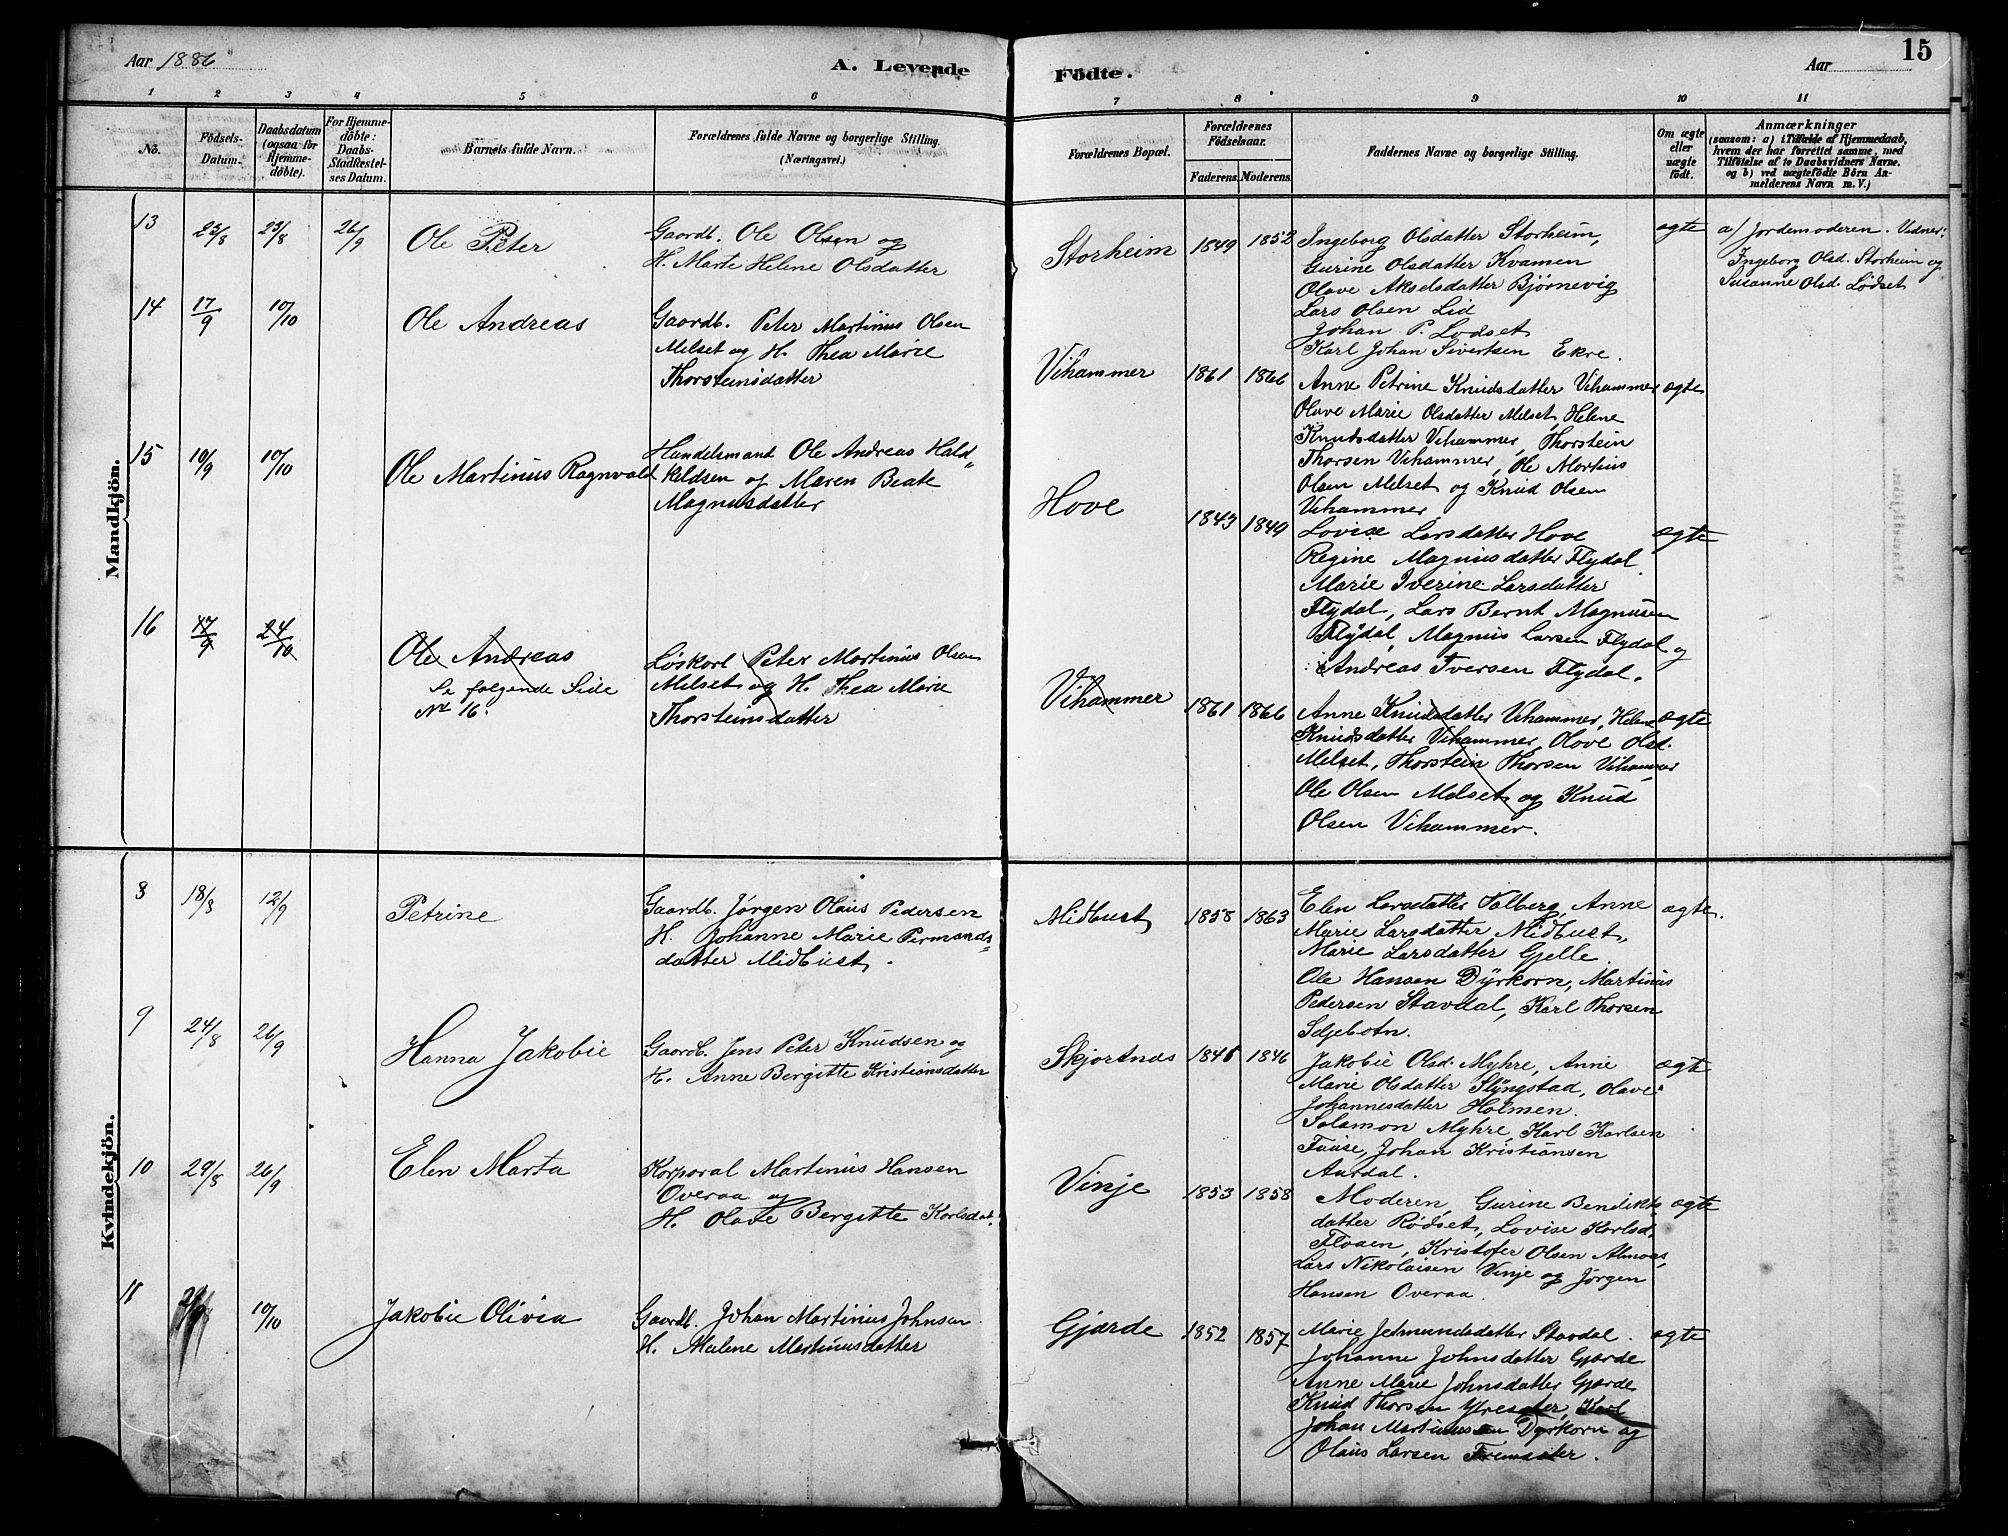 Aar 1886
A. Levende
Fødte.
Aar
15
1 2 3 4 5 6 7 8 9 10 11
No.
Födsels-
Datum.
Daabsdatum
(ogsaa for
Hjemme-
döbte).
For Hjemme-
döbte:
Daabs-
Stadfæstel-
ses Datum.
Barnets fulde Navn.
Forældrenes fulde Navne og borgerlige Stilling.
(Næringsvei.)
Forældrenes Bopæl.
Forældrenes
Födselsaar.
Faderens. Moderens.
Faddernes Navne og borgerlige Stilling.
Om ægte
eller
uægte
födt.
Anmærkninger
(saasom: a) i Tilfælde af Hjemmedaab,
hvem der har forrettet samme, med
Tilföielse af to Daabsvidners Navne.
og b) ved uægtefödte Börn An-
melderens Navn m. V.)
Mandkjön.
13 23/8 23/8 26/9
Ole Peter
Gaardb. Ole Olsen og
H. Marte Helene Olsdatter
Storheim 1849 1852
Ingeborg Olsdatter Storheim,
Gurine Olsdatter Kvamen
Olave Akselsdatter Bjørnevig
Lars Olsen Lid
Johan P. Lødset
Karl Johan Sivertsen Ekre.
ægte
a/ Jordemoderen. Vidner:
Ingeborg Olsd. Storheim og
Susanne Olsd. Lødset
14 17/9 10/10
Ole Andreas
Gaardb. Peter Martinus Olsen
Melset og H. Thea Marie
Thorsteinsdatter
Vihammer 1861 1866
Anne Petrine Knudsdatter Vihammer
Olave Marie Olsdatter Melset, Helene
Knudsdatter Vihammer, Thorstein
Thorsen Vihammer, Ole Martius
Olsen Melset og Knud Olsen
Vihammer
ægte
15 10/9 10/10
Ole Martinus Ragnvald
Handelsmand Ole Andreas Hald-
keldsen og Maren Beate
Magnusdatter
Hove 1843 1849
Lovise Larsdatter Hove
Regine Magnusdatter Flydal
Marie Iverine Larsdatter
Flydal, Lars Bernt Magnusen
Flydal, Magnus Larsen Flydal og
Andreas Iversen Flydal.
ægte
16 17/9 24/10
Ole Andreas
Se følgende Side
No 16.
Løskarl Peter Martinus Olsen
Melset og H. Thea Marie
Thorsteinsdatter
Vihammer 1861 1866
Anne Knudsdatter Vihammer, Helene
Knudsdatter Vihammer, Olave Olsd.
Melset, Thorstein Thorsen Vihammer
Ole Olsen Melset og Knud
Olsen Vihammer.
ægte
Kvindekjön.
8 18/8 12/9
Petrine
Gaardb. Jørgen Olaus Pedersen
H. Johanne Marie Permands-
datter Midbust.
Midbust 1858 1863
Elen Larsdatter Valberg, Anne
Marie Larsdatter Midbust,
Marie Larsdatter Gjelle
Ole Hansen Dyrkorn, Martinus
Pedersen Stavdal, Karl Thorsen
Seljebotn.
ægte.
9 24/8 26/9
Hanna Jakobie
Gaardb. Jens Peter Knudsen og
H. Anne Bergitte Kristiansdatter
Skjortnes 1846
Jakobie Olsd. Myhre, Anne
Marie Olsdatter Slyngstad, Olave
Johannesdatter Holmen.
Salamon Myhre, Karl Karlsen
Fause, Johan Kristiansen
Aurdal.
ægte
10 29/8 26/9
Elen Marta
Korporal Martinus Hansen
Overaa og
H. Olave Bergitte Karlsdat.
Vinje 1853 1858
Moderen, Gurine Bendikts
datter Rødset, Lovise Karlsd.
Floaen, Kristofer Olsen Almaas,
Lars Nikolaisen Vinje og Jørgen
Hansen Overaa.
ægte
11 10/10
Jakobie Olivia
Gaardb. Johan Martinius Johnsen
H. Malene Martinusdatter
Gjærde 1852 1857
Marie Jetmundsdatter Stavdal.
Johanne Johnsdatter Gjærde
Anne Marie Johnsdatter Gjærde
Knud Thorsen Yresæter, Karl
Johan Martinussen Dyrkorn og
Olaus Larsen Fremsæter.
ægte